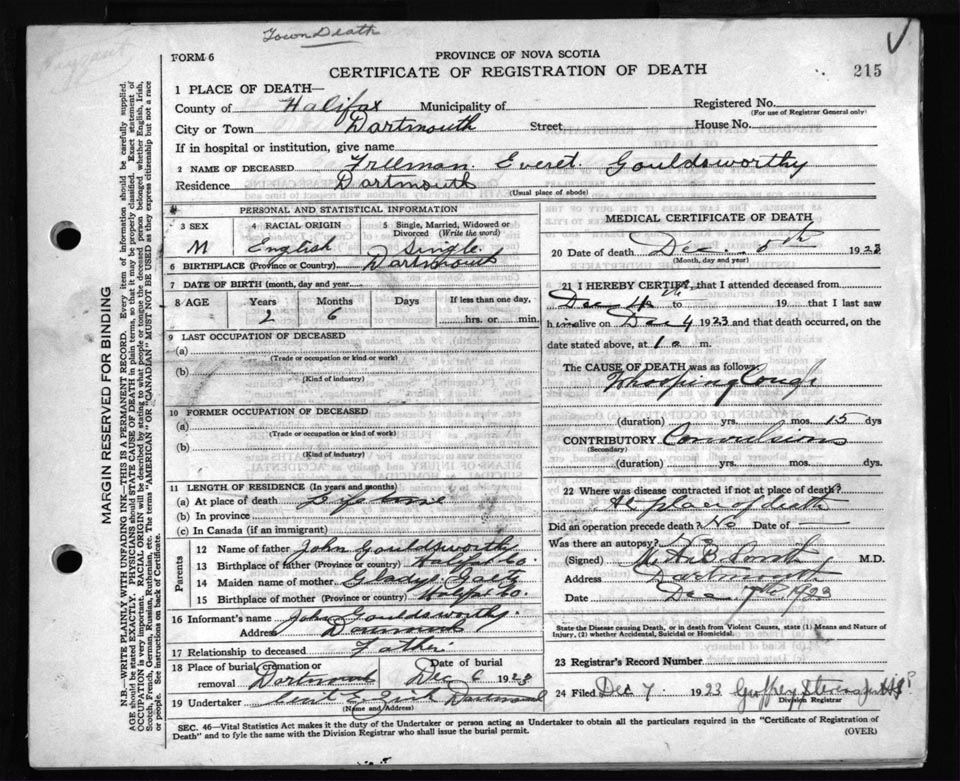 Town Death
FORM 6
PROVINCE OF NOVA SCOTIA
CERTIFICATE OF REGISTRATION OF DEATH
215
1 PLACE OF DEATH—
County of Halifax Municipality of Registered No.
(For use of Registrar General only)
City or Town Dartmouth Street House No.
If in hospital or institution, give name
2 NAME OF DECEASED Freeman Everet Gouldsworthy
Residence Dartmouth
(Usual place of abode)
PERSONAL AND STATISTICAL INFORMATION
3 SEX 4 RACIAL ORIGIN 5 Single, Married, Widowed or
Divorced (Write the word)
M English Single
6 BIRTHPLACE (Province or Country) Dartmouth
7 DATE OF BIRTH (month, day and year)
8 AGE Years Months Days If less than one day,
2 6 hrs. or min.
9 LAST OCCUPATION OF DECEASED
(a)
(Trade or occupation or kind of work)
(b)
(Kind of industry)
10 FORMER OCCUPATION OF DECEASED
(a)
(Trade or occupation or kind of work)
(b)
(Kind of industry)
11 LENGTH OF RESIDENCE (In years and months)
(a) At place of death Life time
(b) In province
(c) In Canada (if an immigrant)
Parents
12 Name of father John Gouldsworthy
13 Birthplace of father (Province or Country) Halifax Co.
14 Maiden name of mother Gladys
15 Birthplace of mother (Province or country) Halifax Co.
16 Informant's name John Gouldsworthy
Address Dartmouth
17 Relationship to deceased Father
18 Place of burial, cremation or Date of burial
removal Dartmouth Dec 6 1923
19 Undertaker Dartmouth
(Name and Address)
MEDICAL CERTIFICATE OF DEATH
20 Date of death Dec. 5th 1923
(Month, day and year)
21 I HEREBY CERTIFY, that I attended deceased from
Dec 4th to 19 that I last saw
him alive on Dec 4 1923 and that death occurred, on the
date stated above, at 1 a m.
The CAUSE OF DEATH was as follows:
Whooping Cough
(duration) yrs. mos. 15 dys
CONTRIBUTORY Convulsions
(Secondary)
(duration) yrs. mos. dys.
22 Where was disease contracted if not at place of death?
At place of death
Did an operation precede death? No Date of —
Was there an autopsy? No
(Signed) M.D.
Address Dartmouth
Date Dec 7th 1923
State the Disease causing Death, or in death from Violent Causes, state (1) Means and Nature of
Injury, (2) whether Accidental, Suicidal or Homicidal.
23 Registrar's Record Number
24 Filed Dec 7. 1923 Geoffrey Stevens
Division Registrar
SEC. 46—Vital Statistics Act makes it the duty of the Undertaker or person acting as Undertaker to obtain all the particulars required in the "Certificate of Registration of
Death" and to fyle the same with the Division Registrar who shall issue the burial permit. (OVER)
MARGIN RESERVED FOR BINDING
N.B.—WRITE PLAINLY WITH UNFADING INK—THIS IS A PERMANENT RECORD. Every item of information should be carefully supplied.
AGE should be stated EXACTLY. PHYSICIANS should STATE CAUSE OF DEATH in plain terms, so that it may be properly classified. Exact statement of
OCCUPATION is very important. RACIAL ORIGIN will be described by stating to what people or tongue the deceased person belonged whether English, Irish,
Scotch, French, German, Russian, Ruthenian, etc. The terms "AMERICAN" OR "CANADIAN" MUST NOT BE USED as they express citizenship but not a race
or people. See instructions on back of Certificate.